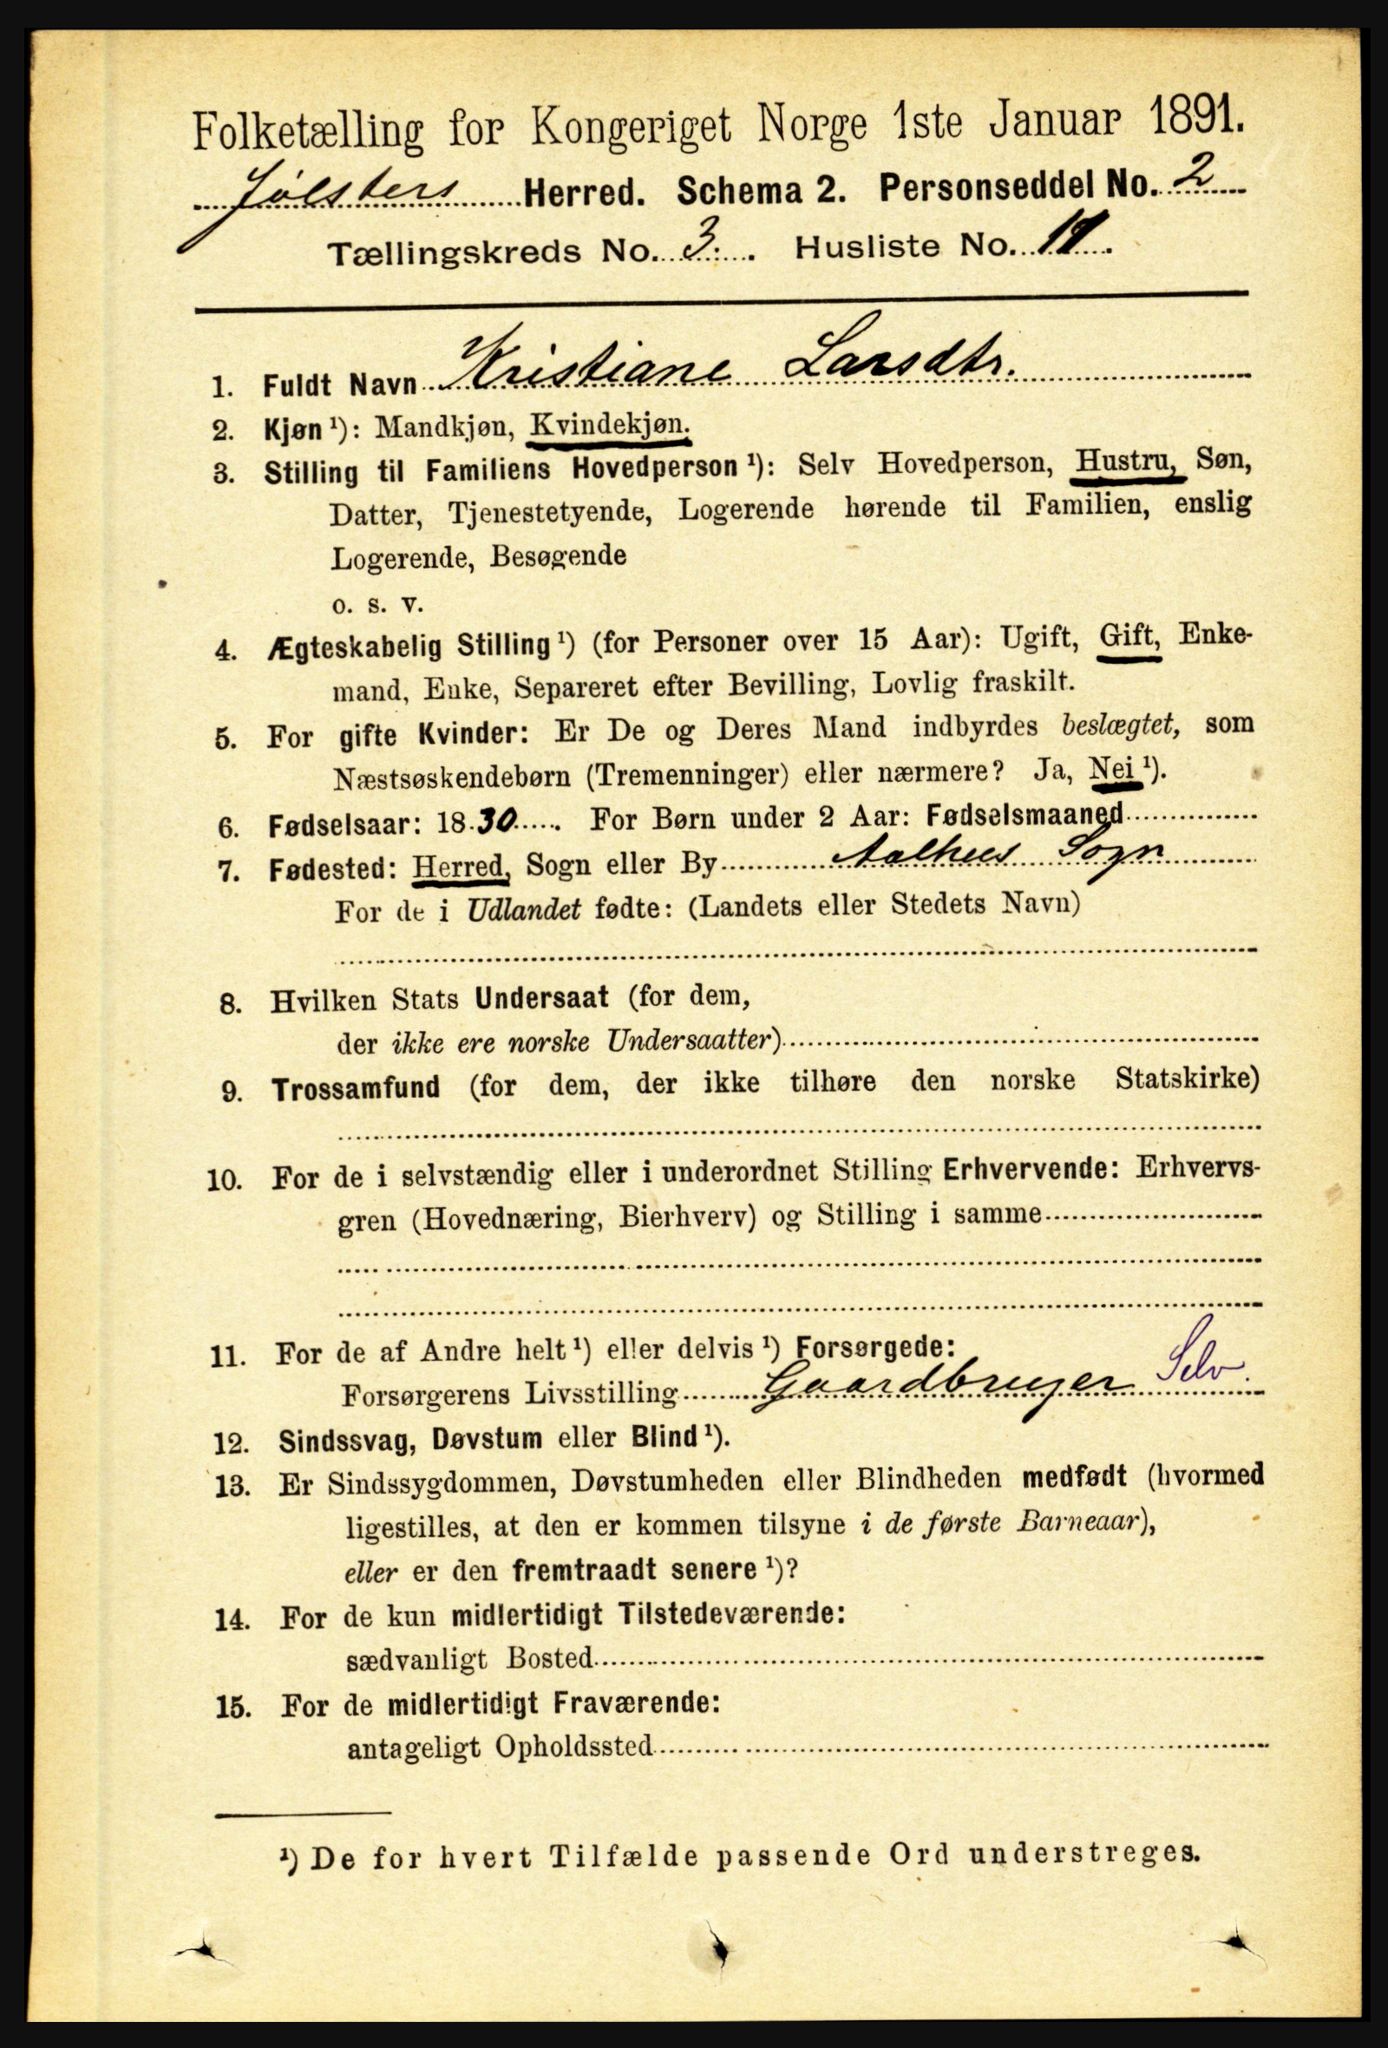 Folketælling for Kongeriget Norge 1ste Januar 1891.
Jølsters Herred. Schema 2. Personseddel No. 2
Tællingskreds No. 3. Husliste No.
1. Fuldt Navn Kristiane Larsdtr.
2. Kjøn ¹): Mandkjøn, Kvindekjøn.
3. Stilling til Familiens Hovedperson ¹): Selv Hovedperson, Hustru, Søn,
Datter, Tjenestetyende, Logerende hørende til Familien, enslig
Logerende, Besøgende
o. s. v.
4. Ægteskabelig Stilling ¹) (for Personer over 15 Aar): Ugift, Gift, Enke-
mand, Enke, Separeret efter Bevilling, Lovlig fraskilt.
5. For gifte Kvinder: Er De og Deres Mand indbyrdes beslægtet, som
Næstsøskendebørn (Tremenninger) eller nærmere? Ja, Nei ¹).
6. Fødselsaar: 1830. For Børn under 2 Aar: Fødselsmaaned
7. Fødested: Herred, Sogn eller By Aalhus Sogn
For de i Udlandet fødte: (Landets eller Stedets Navn)
8. Hvilken Stats Undersaat (for dem,
der ikke ere norske Undersaatter)
9. Trossamfund (for dem, der ikke tilhøre den norske Statskirke)
10. For de i selvstændig eller i underordnet Stilling Erhvervende: Erhvervs-
gren (Hovednæring, Bierhverv) og Stilling i samme
11. For de af Andre helt ¹) eller delvis ¹) Forsørgede:
Forsørgerens Livsstilling Gaardbruger Selv.
12. Sindssvag, Døvstum eller Blind ¹).
13. Er Sindssygdommen, Døvstumheden eller Blindheden medfødt (hvormed
ligestilles, at den er kommen tilsyne i de første Barneaar),
eller er den fremtraadt senere ¹)?
14. For de kun midlertidigt Tilstedeværende:
sædvanligt Bosted
15. For de midlertidigt Fraværende:
antageligt Opholdssted
¹) De for hvert Tilfælde passende Ord understreges.